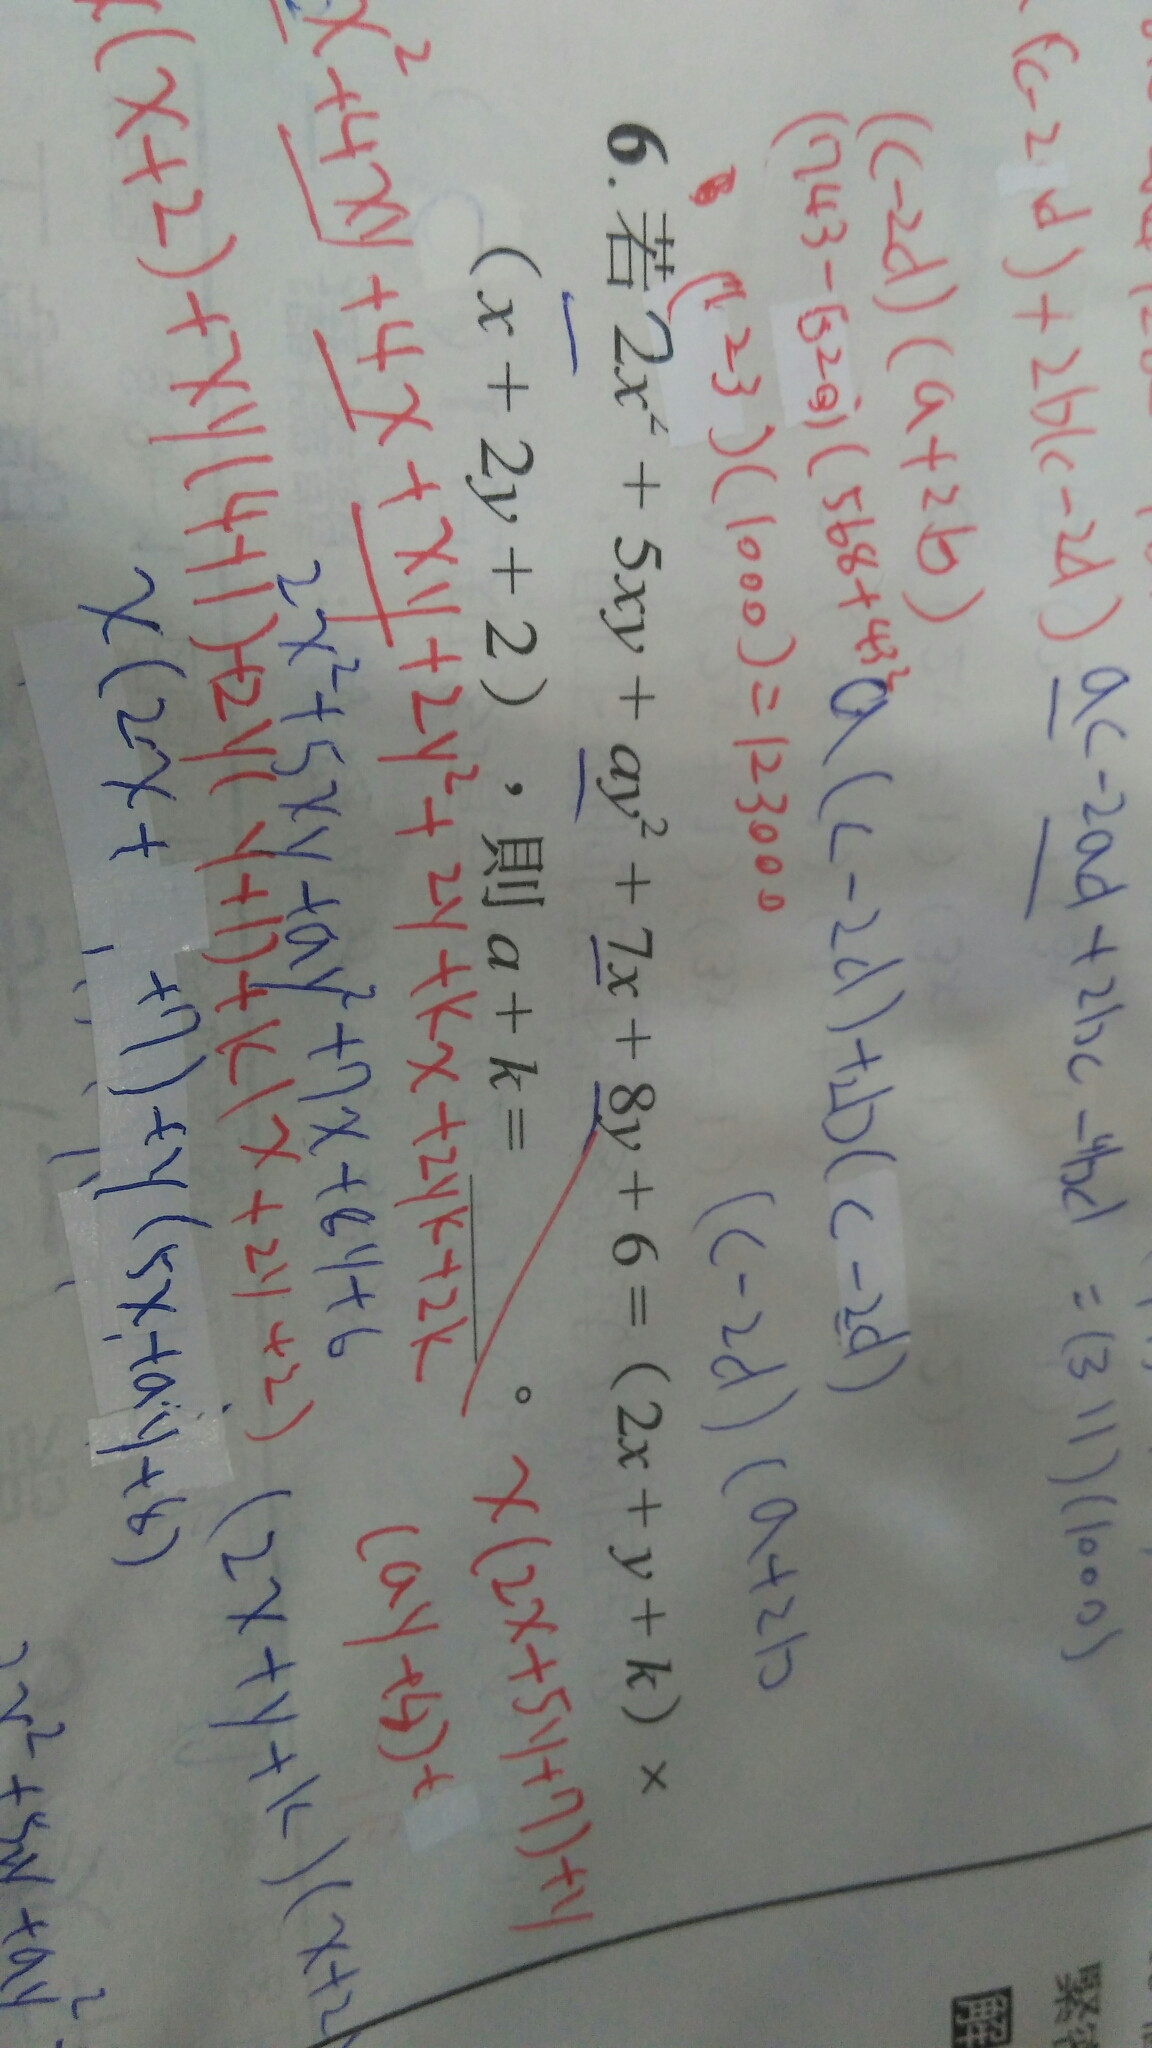 (c-2d)+2b(c-2d)
ac-2ad+2bc-4bd =(311)(1000)
(c-2d)(a+2b)
a(c-2d)+2b(c-2d)
(c-2d)(a+2b
(123)(1000)=123000
6. 若 2x²+5xy+ay²+7x+8y+6=(2x+y+k)×
(x+2y+2),則 a+k= 。
x(2x+5y+7)+y
(ay+8)+
x²+4xy+4x+xy+2y²+2y+kx+2yk+2k
2x²+5xy+ay²+7x+8y+6
(x+2)+xy(4+1)+2y(y+1)+k(x+2y+2)
(2x+y+k)(x+2
x(2x+ +7)+y(5x+ay+8)
x²+5xy+ay²
解